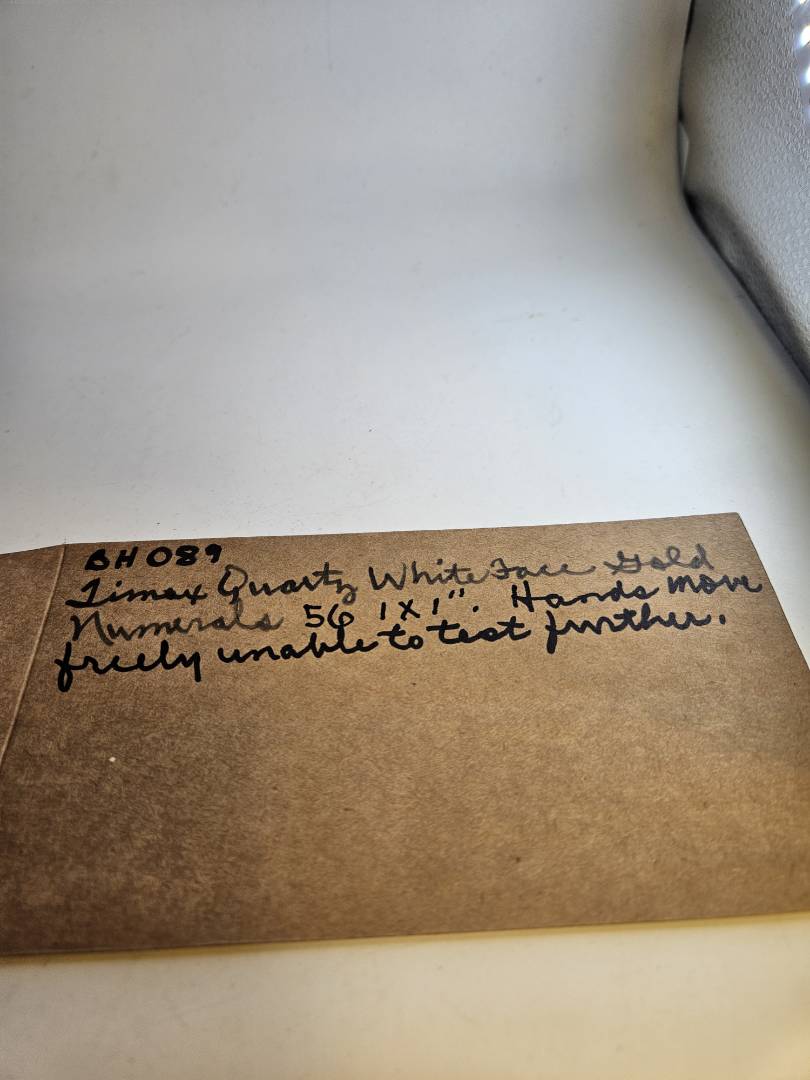 BH 089
Timex Quartz White Face Gold
Numerals 56 1 X 1". Hands move
freely unable to test further.